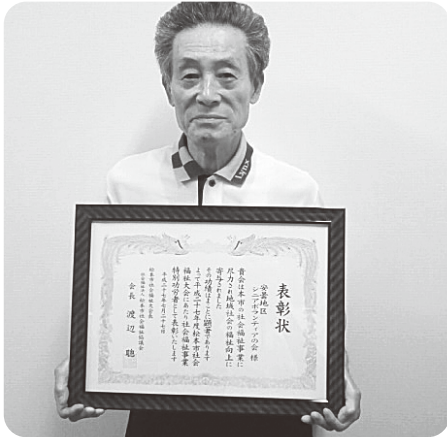 表彰状
安曇地区
シニアボランティアの会 様
貴会は本市の社会福祉事業に
尽力され地域社会の福祉向上に
寄与されました
その功績はまことに顕著であります
よって平成二十七年度松本市社会
福祉大会にあたり社会福祉事業
特別功労者として表彰いたします
平成二十七年七月二十七日
松本市社会福祉大会
社会福祉法人 松本市社会福祉協議会
会長 渡辺 聰
Lynx